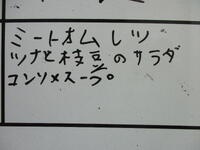 ミートオムレツ
ツナと枝豆のサラダ
コンソメスープ